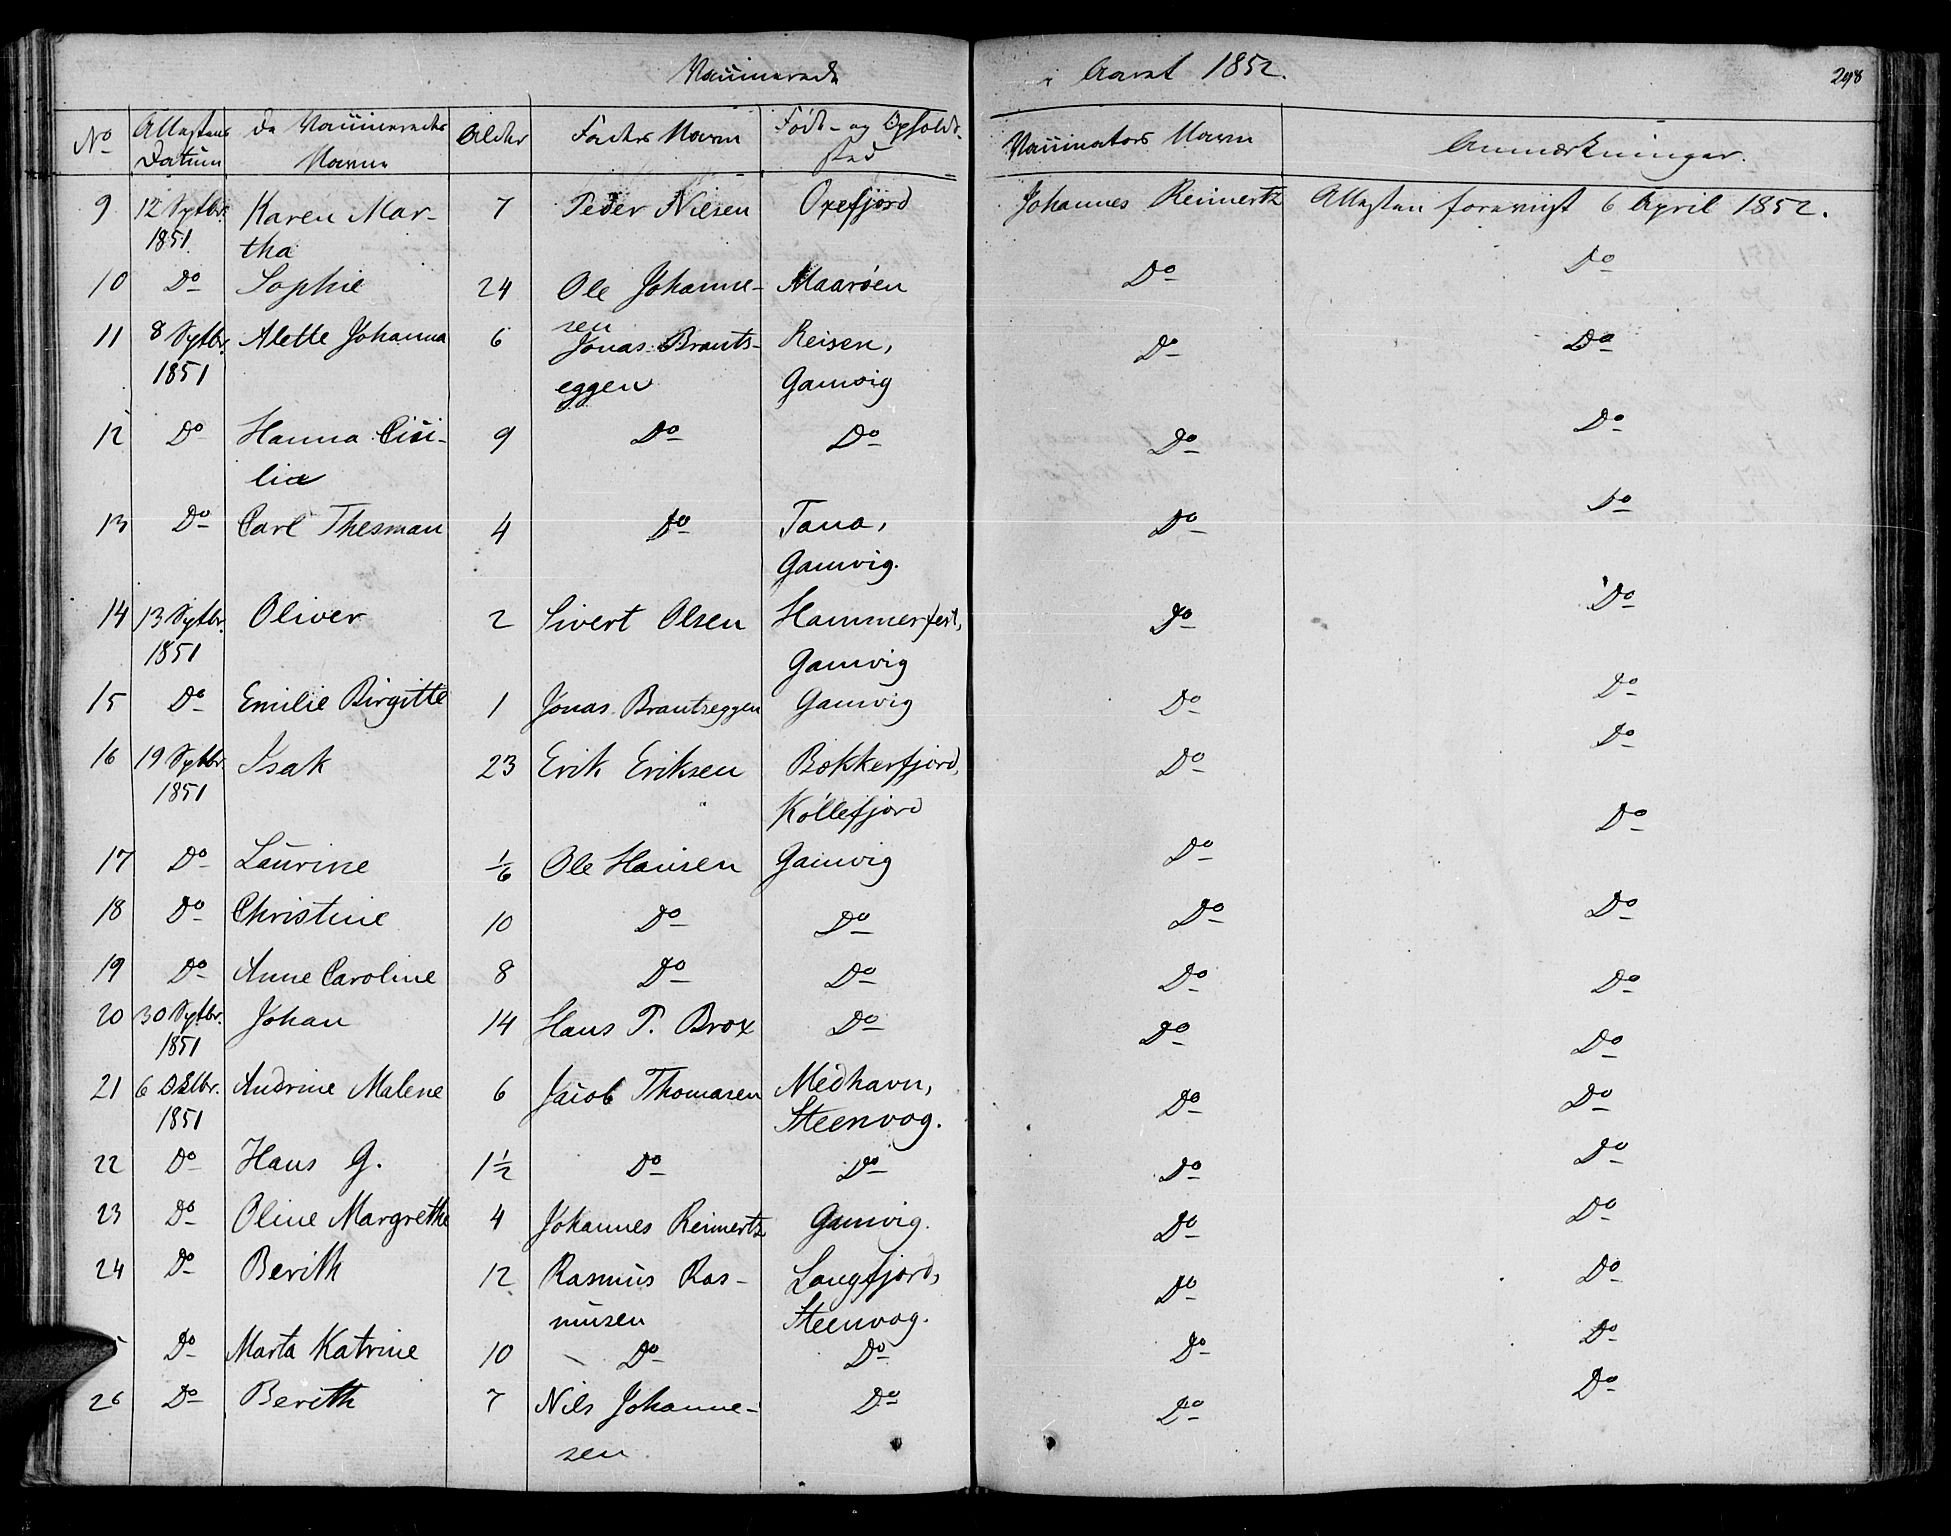 Vaccinerede i Aaret 1852. 298
No Attestens Datum De Vaccineredes Navne Alder Faders Navn Føde- og Opholdssted Vaccinators Navn Anmærkninger.
9 12 Sptbr. 1851 Karen Martha 7 Peder Nilsen Oxefjord Johannes Reinertz Attesten foreviist 6 April 1852.
10 Do Sophie 24 Ole Johannesen Maarøen Do Do
11 8 Sptbr. 1851 Alette Johanna 6 Jonas Brantseggen Reisen, Gamvig Do Do
12 Do Hanna Cicilia 9 Do Do Do Do
13 Do Carl Thesman 4 Do Tana, Gamvig. Do Do
14 13 Sptbr. 1851 Oliver 2 Sivert Olsen Hammerfest, Gamvig Do Do
15 Do Emilie Birgitte 1 Jonas Brantseggen Gamvig Do Do
16 19 Sptbr. 1851 Isak 23 Erik Eriksen Bøkkerfjord, Køllefjord Do Do
17 Do Laurine 1/6 Ole Hansen Gamvig Do Do
18 Do Christine 10 Do Do Do Do
19 Do Anne Caroline 8 Do Do Do Do
20 30 Sptbr. 1851 Johan 14 Hans P. Brox Do Do Do
21 6 Oktbr. 1851 Andrine Malene 6 Jacob Thomasen Medhavn, Steenvog. Do Do
22 Do Hans G. 1 1/2 Do Do Do Do
23 Do Oline Margrethe 4 Johannes Reinertz Gamvig. Do Do
24 Do Berith 12 Rasmus Rasmusen Langfjord, Steenvog. Do Do
5 Do Marta Katrine 10 Do Do Do Do
26 Do Berith 7 Nils Johannesen Do Do Do